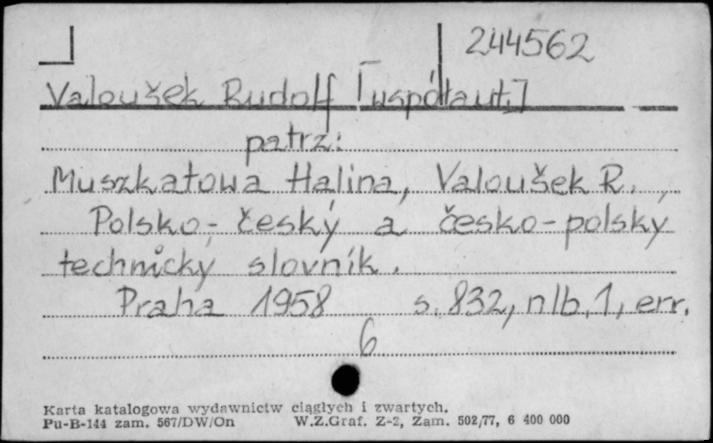 244562
Valoušek Rudolf [współaut.]
patrz:
Muszkatowa Halina, Valoušek R.,
Polsko-český a česko-polský
technický slovník.
Praha 1958 s. 832, nlb. 1, err.
6
Karta katalogowa wydawnictw ciągłych i zwartych.
Pu-B-144 zam. 567/DW/On W.Z.Graf. Z-2, Zam. 502/77, 6 400 000